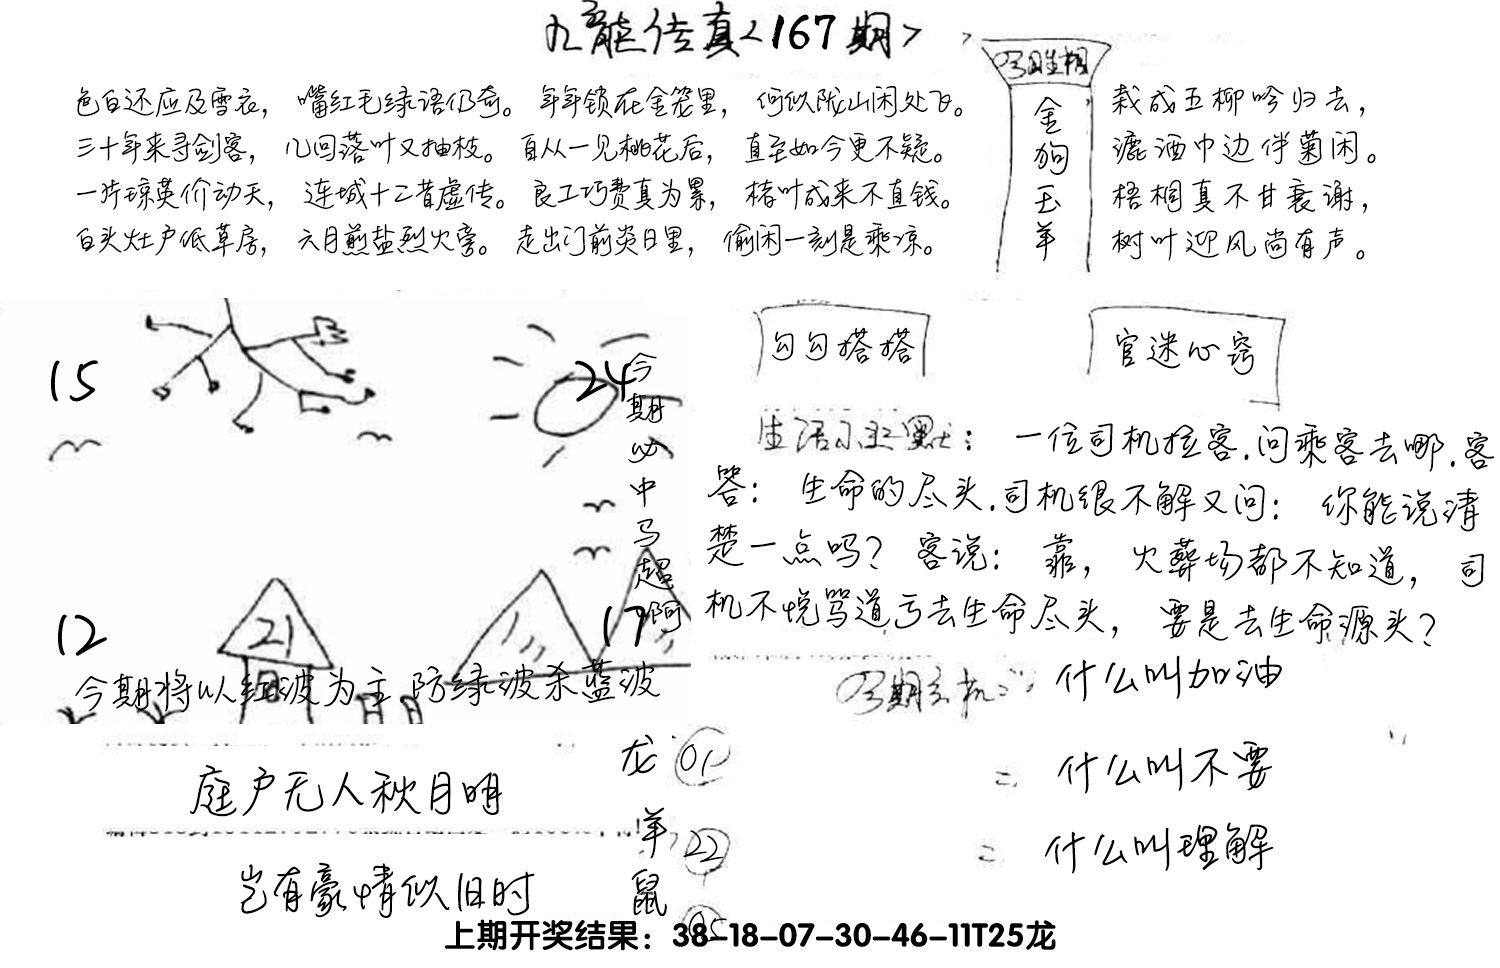 九龙传真<167期>
色白还应及雪衣， 嘴红毛绿语仍奇。 年年锁在金笼里， 何似陇山闲处飞。
三十年来寻剑客， 几回落叶又抽枝。 自从一见桃花后， 直至如今更不疑。
一片琼英价动天， 连城十二昔虚传。 良工巧费真为累， 楮叶成来不直钱。
白头灶户低草房， 六月煎盐烈火旁。 走出门前炎日里， 偷闲一刻是乘凉。
金狗玉羊
栽成五柳吟归去，
漉酒中边伴菊闲。
梧桐真不甘衰谢，
树叶迎风尚有声。
15
24
今期必中马超啊
12
21
17
今期将以红波为主 防绿波杀蓝波
勾勾搭搭
官迷心窍
生活小幽默： 一位司机拉客.问乘客去哪.客
答： 生命的尽头.司机很不解又问： 你能说清
楚一点吗？ 客说： 靠， 火葬场都不知道， 司
机不悦骂道亏去生命尽头， 要是去生命源头？
什么叫加油
= 什么叫不要
= 什么叫理解
庭户无人秋月明
岂有豪情似旧时
龙 01
羊 22
鼠 05
上期开奖结果：38-18-07-30-46-11T25龙